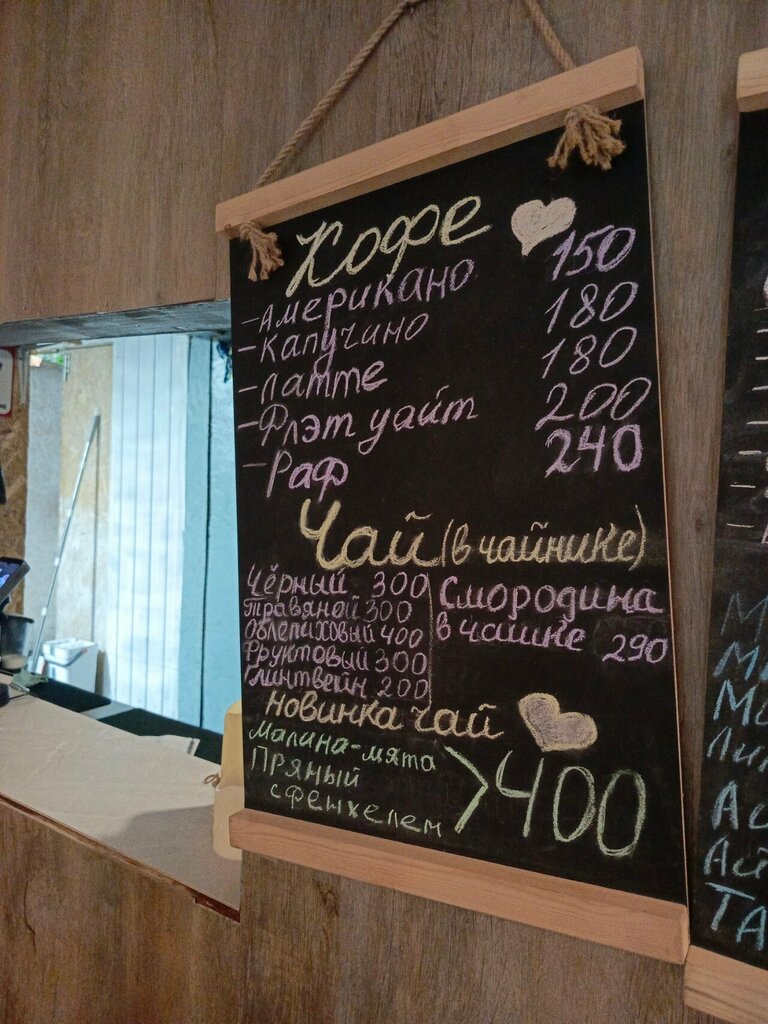 Кофе
-Американо 150
-Капучино 180
-Латте 180
-Флэт уайт 200
-Раф 240
Чай (в чайнике)
Чёрный 300
Травяной 300
Облепиховый 400
Фруктовый 300
Глинтвейн 200
Смородина
в чашке 290
Новинка чай
Малина-мята
Пряный
с фенхелем
>400